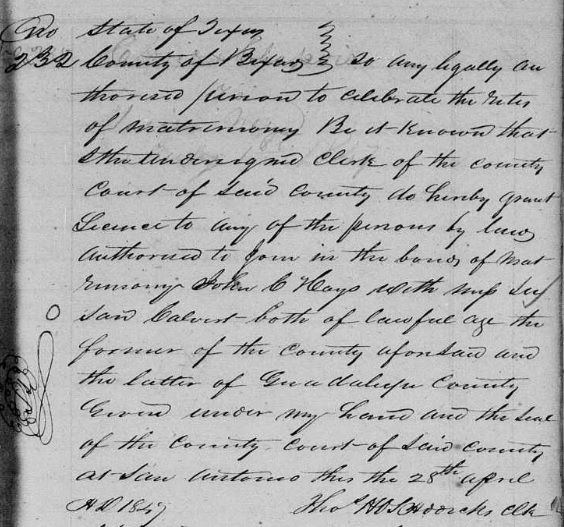 No State of Texas
232 County of Bexar To any legally au
thorised person to celebrate the rites
of matrimony Be it Known that
I the undersigned Clerk of the county
Court of said County do hereby grant
License to any of the persons by law
authorised to Join in the bonds of Mat
rimony John C Hays with miss Su
san Calvert both of lawful age the
former of the County aforesaid and
the latter of Guadalupe County
Given under my hand and the seal
of the County Court of said County
at San Antonio this the 28th April
AD 1847 Thos Clk